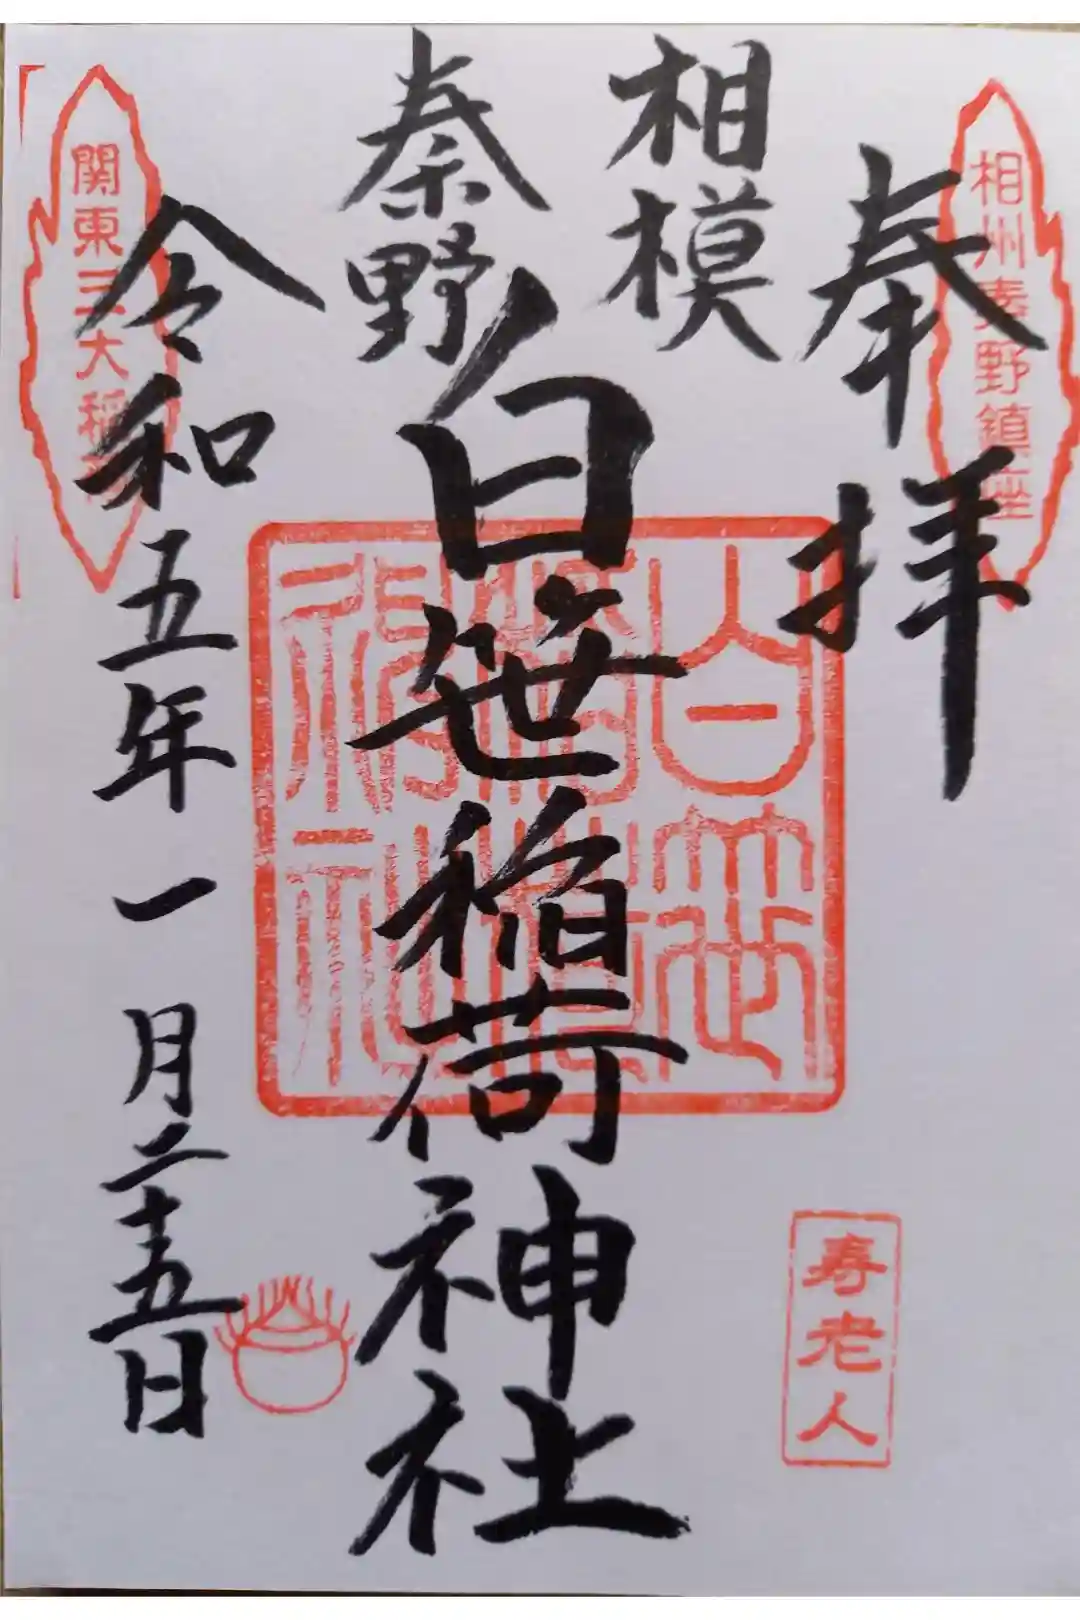 相州秦野鎮座
奉拝
相模
秦野
白笹稲荷神社
白笹
稲荷
神社
令和五年一月二十五日
関東三大稲荷
寿老人